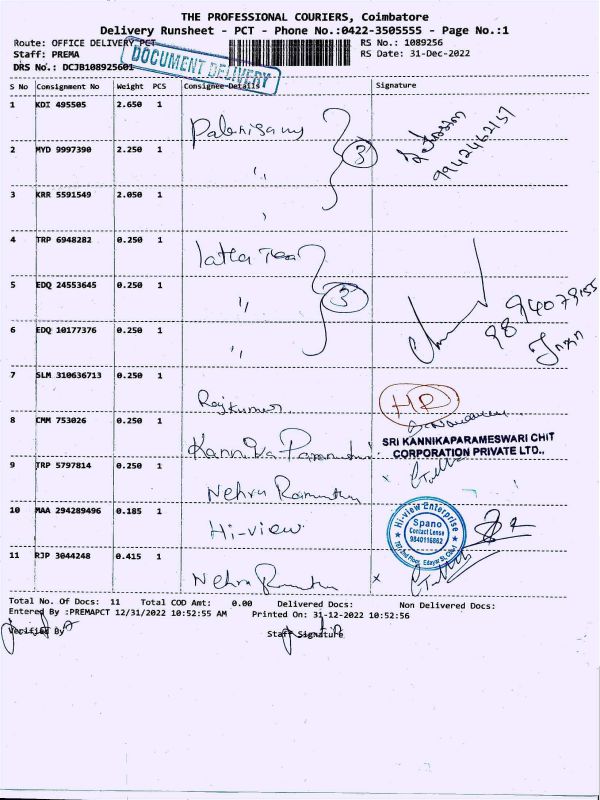 THE PROFESSIONAL COURIERS, Coimbatore
Delivery Runsheet - PCT - Phone No.:0422-3505555 - Page No.:1
Route: OFFICE DELIVERY PCT
RS No.: 1089256
Staff: PREMA
RS Date: 31-Dec-2022
DRS No.: DCJB108925601
DOCUMENT DELIVERY
S No Consignment No Weight PCS Consignee Details Signature
1 KDI 495505 2.650 1 Palanisamy
3
9942462157
2 MYD 9997390 2.250 1 "
3 KRR 5591549 2.050 1
4 TRP 6948282 0.250 1 latha Tea
5 EDQ 24553645 0.250 1 "
3
6 EDQ 10177376 0.250 1 "
7 SLM 310636713 0.250 1 Rajkumar
HR
8 CMM 753026 0.250 1 Kannika
SRI KANNIKAPARAMESWARI CHIT
CORPORATION PRIVATE LTD.,
9 TRP 5797814 0.250 1 Nehru x
10 MAA 294289496 0.185 1 Hi-view
Hi-view Enterprise
Spano
Contact Lense
9840116862
11 RJP 3044248 0.415 1 Nehru x
Total No. Of Docs: 11 Total COD Amt: 0.00 Delivered Docs: Non Delivered Docs:
Entered By :PREMAPCT 12/31/2022 10:52:55 AM Printed On: 31-12-2022 10:52:56
Verified By
Staff Signature